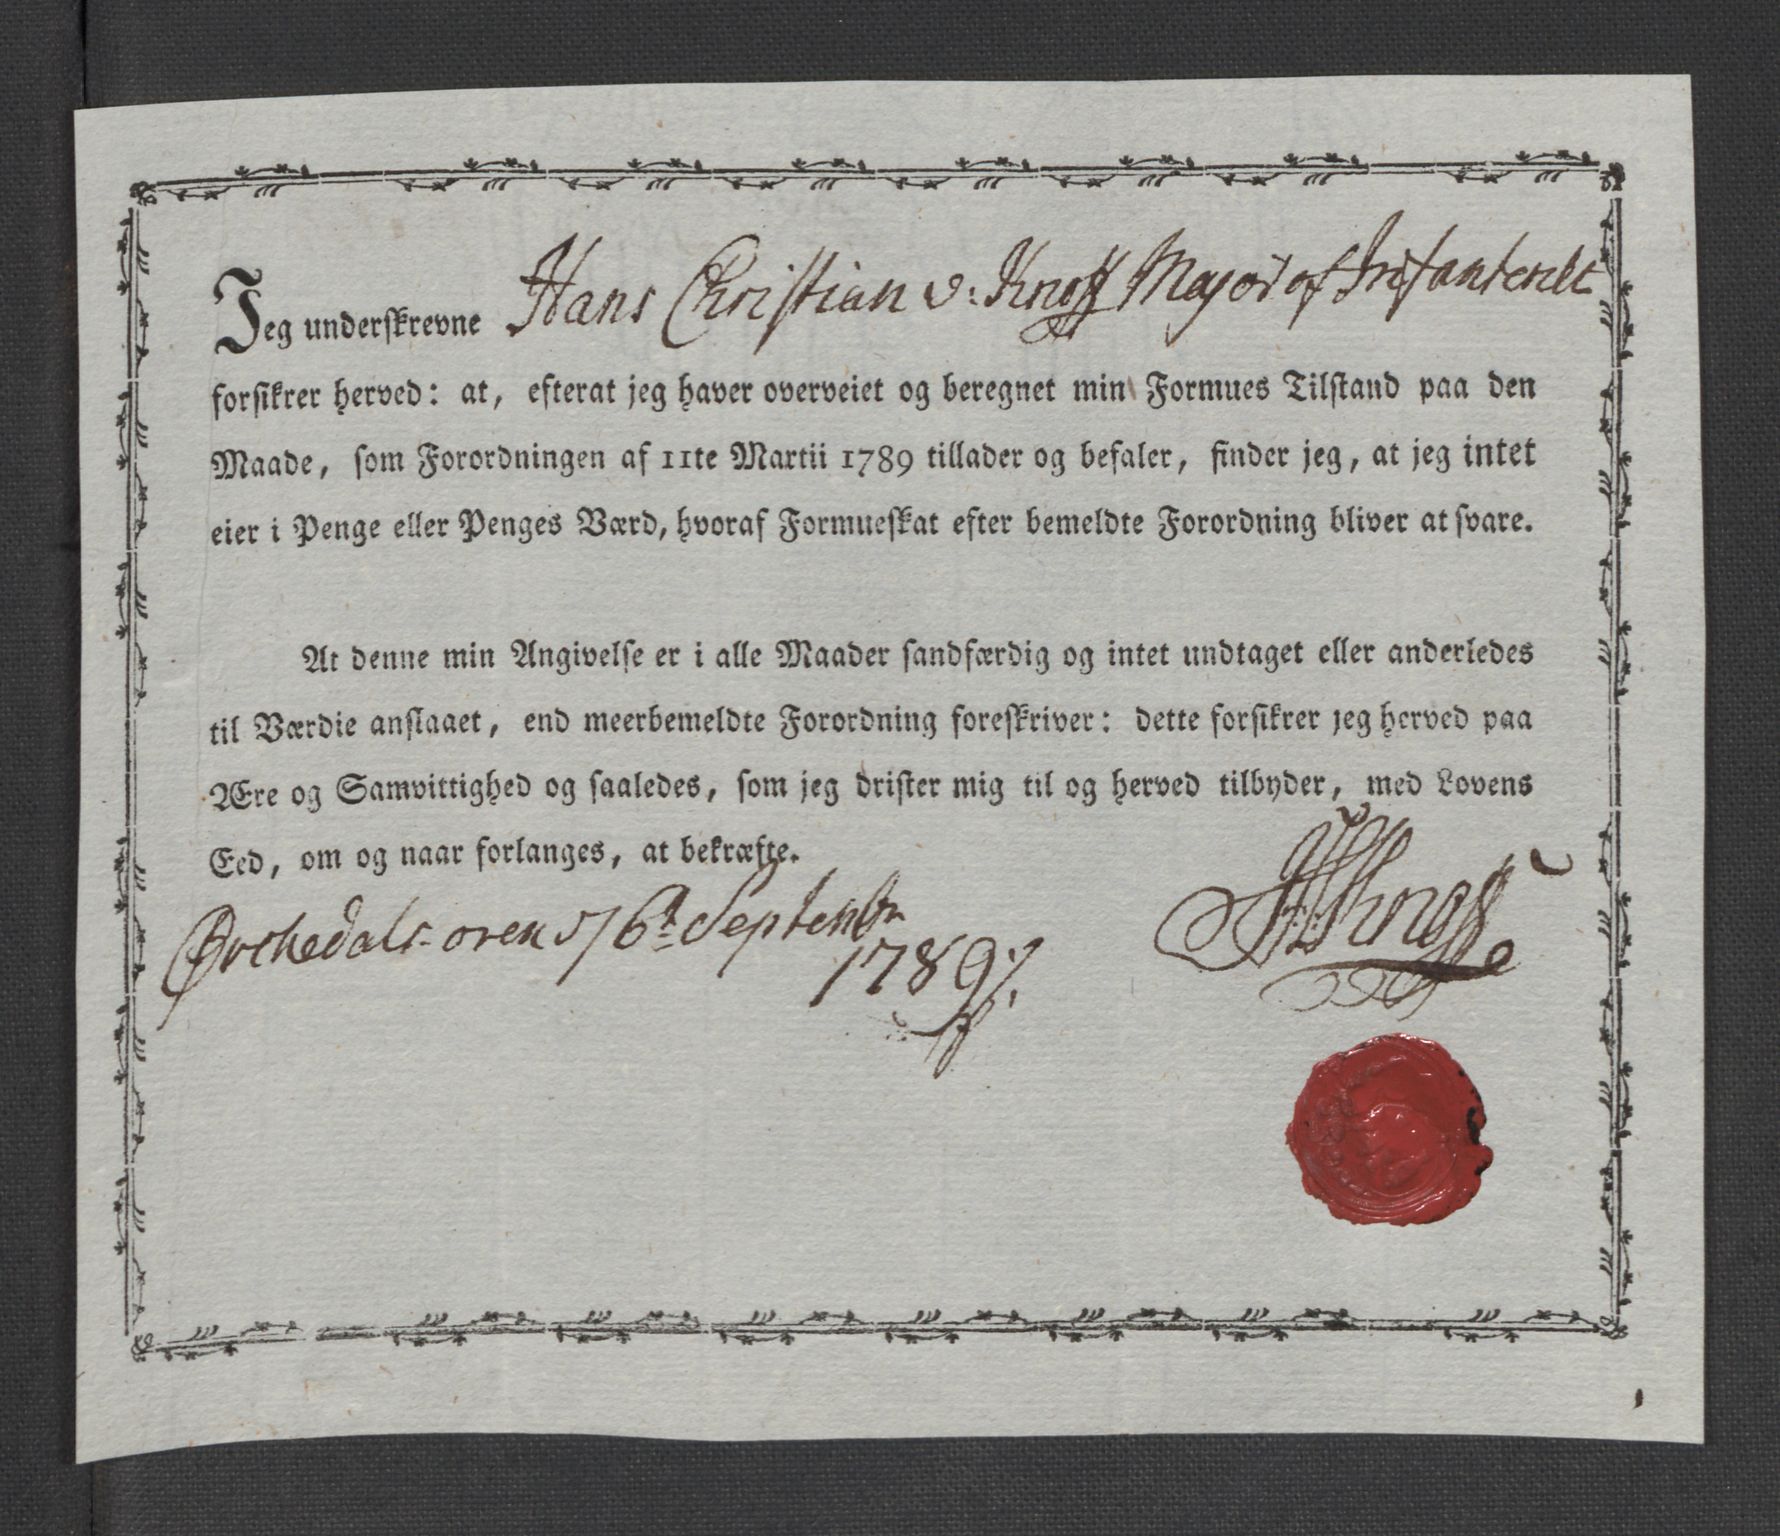 Jeg underskrevne Hans Christian v: Knoff Major af Infanteriet
forsikrer herved: at, efterat jeg haver overveiet og beregnet min Formues Tilstand paa den
Maade, som Forordningen af 11te Martii 1789 tillader og befaler, finder jeg, at jeg intet
eier i Penge eller Penges Værd, hvoraf Formueskat efter bemeldte Forordning bliver at svare.
At denne min Angivelse er i alle Maader sandfærdig og intet undtaget eller anderledes
til Værdie anslaaet, end meerbemeldte Forordning foreskriver: dette forsikrer jeg herved paa
Ære og Samvittighed og saaledes, som jeg drister mig til og herved tilbyder, med Lovens
Eed, om og naar forlanges, at bekræfte.
Örckedals-oren Septembr
1789
Knoff